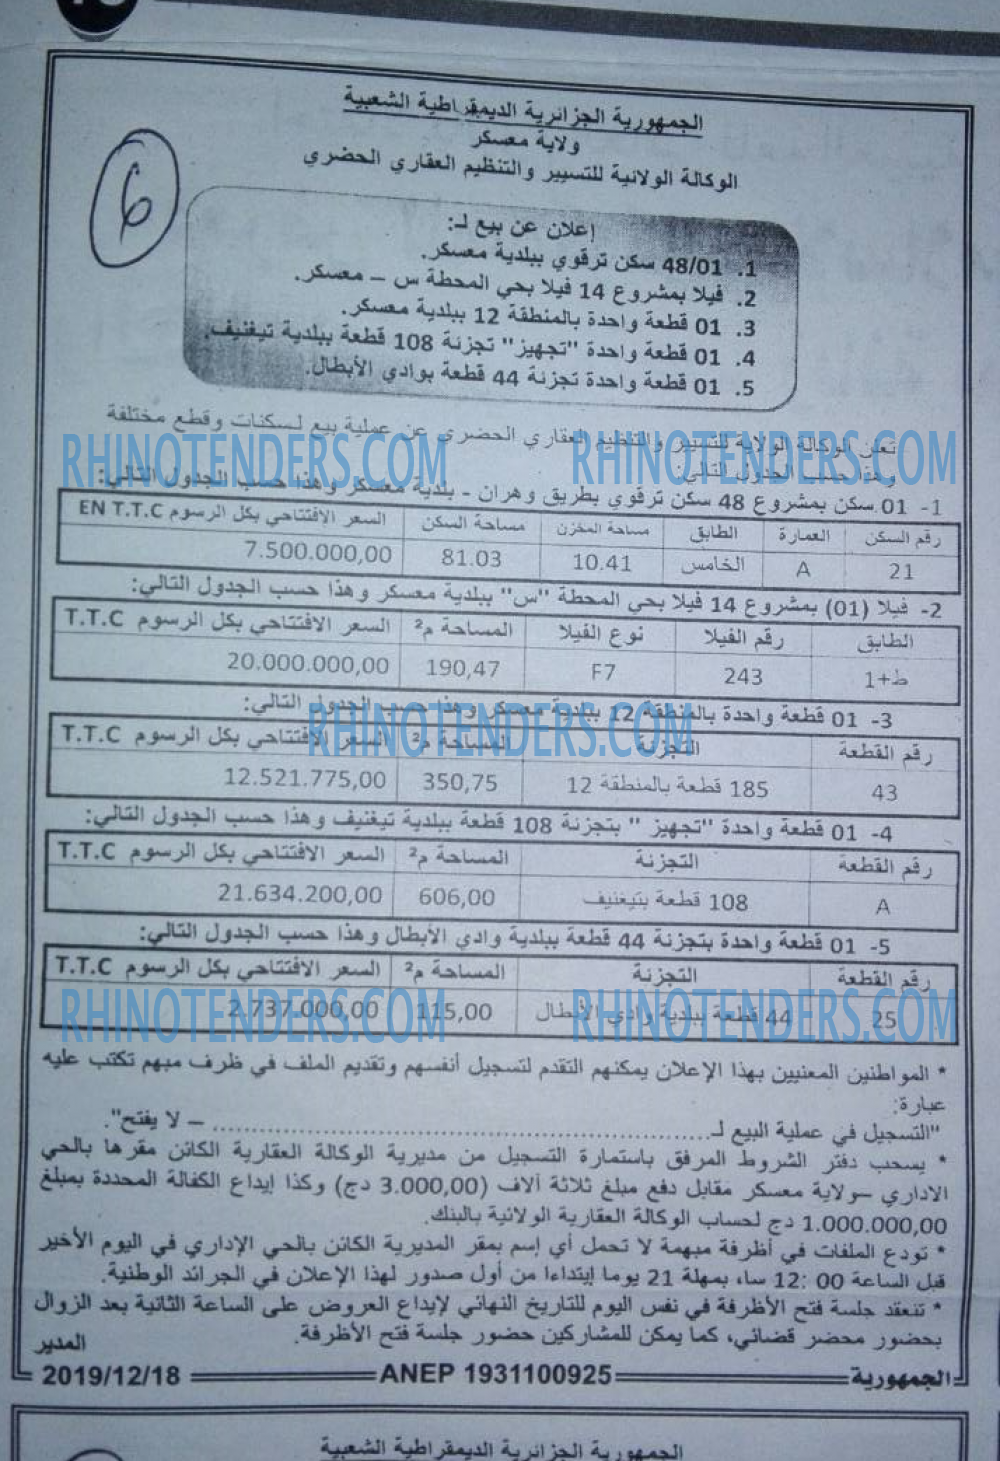 الجمهورية الجزائرية الديمقراطية الشعبية
ولاية معسكر
الوكالة الولائية للتسيير والتنظيم العقاري الحضري
6
إعلان عن بيع لـ:
1. 48/01 سكن ترقوي ببلدية معسكر.
2. فيلا بمشروع 14 فيلا بحي المحطة س – معسكر.
3. 01 قطعة واحدة بالمنطقة 12 ببلدية معسكر.
4. 01 قطعة واحدة "تجهيز" تجزئة 108 قطعة ببلدية تيغنيف.
5. 01 قطعة واحدة تجزئة 44 قطعة بوادي الأبطال.
تعلن الوكالة الولاية للتسيير والتنظيم العقاري الحضري عن عملية بيع لسكنات وقطع مختلفة
وهذا حسب الجدول التالي:
RHINOTENDERS.COM RHINOTENDERS.COM
1- 01 سكن بمشروع 48 سكن ترقوي بطريق وهران - بلدية معسكر وهذا حسب الجدول التالي:
رقم السكن العمارة الطابق مساحة المخزن مساحة السكن السعر الافتتاحي بكل الرسوم EN T.T.C
21 A الخامس 10.41 81.03 7.500.000,00
2- فيلا (01) بمشروع 14 فيلا بحي المحطة "س" ببلدية معسكر وهذا حسب الجدول التالي:
الطابق رقم الفيلا نوع الفيلا المساحة م² السعر الافتتاحي بكل الرسوم T.T.C
ط+1 243 F7 190,47 20.000.000,00
3- 01 قطعة واحدة بالمنطقة 12 ببلدية معسكر وهذا حسب الجدول التالي:
RHINOTENDERS.COM
رقم القطعة التجزئة المساحة م² السعر الافتتاحي بكل الرسوم T.T.C
43 185 قطعة بالمنطقة 12 350,75 12.521.775,00
4- 01 قطعة واحدة "تجهيز " بتجزئة 108 قطعة ببلدية تيغنيف وهذا حسب الجدول التالي:
رقم القطعة التجزئة المساحة م² السعر الافتتاحي بكل الرسوم T.T.C
A 108 قطعة بتيغنيف 606,00 21.634.200,00
5- 01 قطعة واحدة بتجزئة 44 قطعة ببلدية وادي الأبطال وهذا حسب الجدول التالي:
رقم القطعة التجزئة المساحة م² السعر الافتتاحي بكل الرسوم T.T.C
25 44 قطعة ببلدية وادي الأبطال 115,00 2.737.000,00
RHINOTENDERS.COM RHINOTENDERS.COM
* المواطنين المعنيين بهذا الإعلان يمكنهم التقدم لتسجيل أنفسهم وتقديم الملف في ظرف مبهم تكتب عليه
عبارة:
"التسجيل في عملية البيع لـ........................................................ – لا يفتح".
* يسحب دفتر الشروط المرفق باستمارة التسجيل من مديرية الوكالة العقارية الكائن مقرها بالحي
الاداري –ولاية معسكر مقابل دفع مبلغ ثلاثة آلاف (3.000,00 دج) وكذا إيداع الكفالة المحددة بمبلغ
1.000.000,00 دج لحساب الوكالة العقارية الولائية بالبنك.
* تودع الملفات في أظرفة مبهمة لا تحمل أي إسم بمقر المديرية الكائن بالحي الإداري في اليوم الأخير
قبل الساعة 00 :12 سا، بمهلة 21 يوما إبتداءا من أول صدور لهذا الإعلان في الجرائد الوطنية.
* تنعقد جلسة فتح الأظرفة في نفس اليوم للتاريخ النهائي لإيداع العروض على الساعة الثانية بعد الزوال
بحضور محضر قضائي، كما يمكن للمشاركين حضور جلسة فتح الأظرفة.
المدير
الجمهورية ANEP 1931100925 2019/12/18
الجمهورية الجزائرية الديمقراطية الشعبية